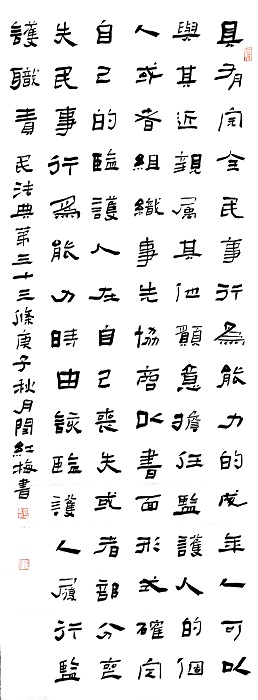 具有完全民事行為能力的成年人可以
與其近親属其他願意擔任監護人的個
人或者組織事先協商以書面形式確定
自己的監護人在自己喪失或者部分喪
失民事行為能力時由該監護人履行監
護職責 民法典第三十三條庚子秋月閆紅梅書